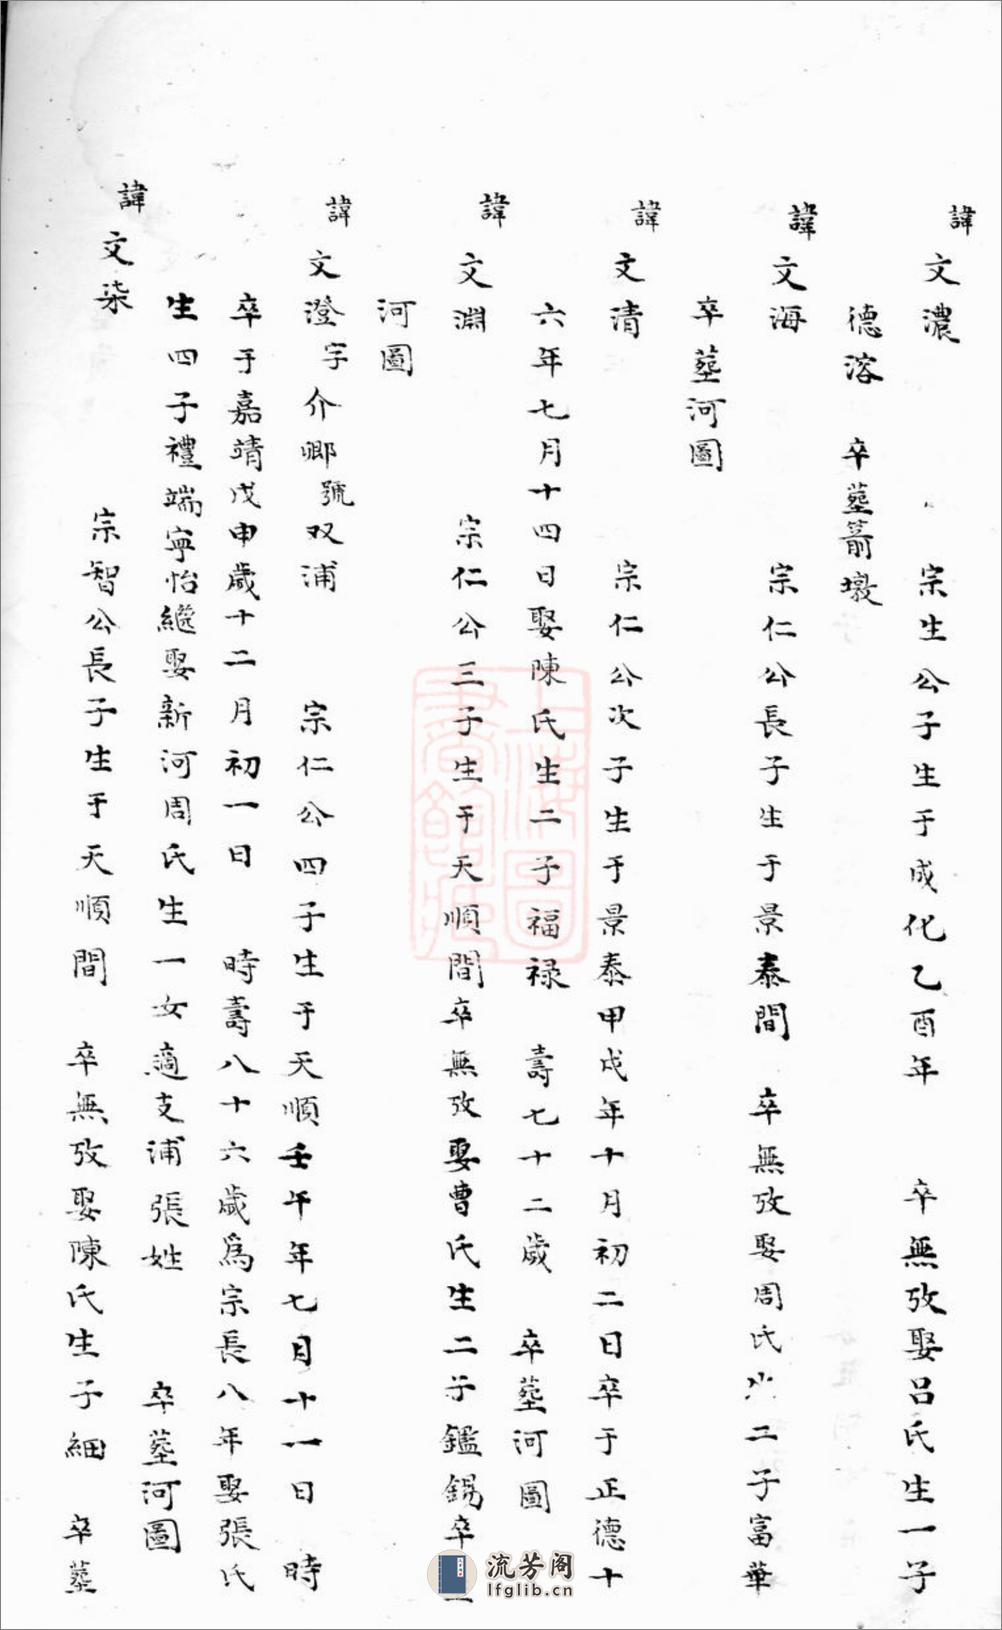 諱文濃 宗生公子生于成化乙酉年 卒無攷娶呂氏生一子
德溶 卒塟箭墩
諱文海 宗仁公長子生于景泰間 卒無攷娶周氏生二子富華
卒塟河圖
諱文清 宗仁公次子生于景泰甲戌年十月初二日卒于正德十
六年七月十四日娶陳氏生二子福禄 壽七十二歲 卒塟河圖
諱文淵 宗仁公三子生于天順間卒無攷娶曹氏生二子鑑錫卒
河圖
諱文澄字介卿號双浦 宗仁公四子生于天順壬午年七月十一日 時
卒于嘉靖戊申歲十二月初一日 時壽八十六歲為宗長八年娶張氏
生四子禮端寧怡繼娶新河周氏生一女適支浦張姓 卒塟河圖
諱文柒 宗智公長子生于天順間 卒無攷娶陳氏生子細 卒塟
上海圖書館藏
流芳阁
lfglib.cn